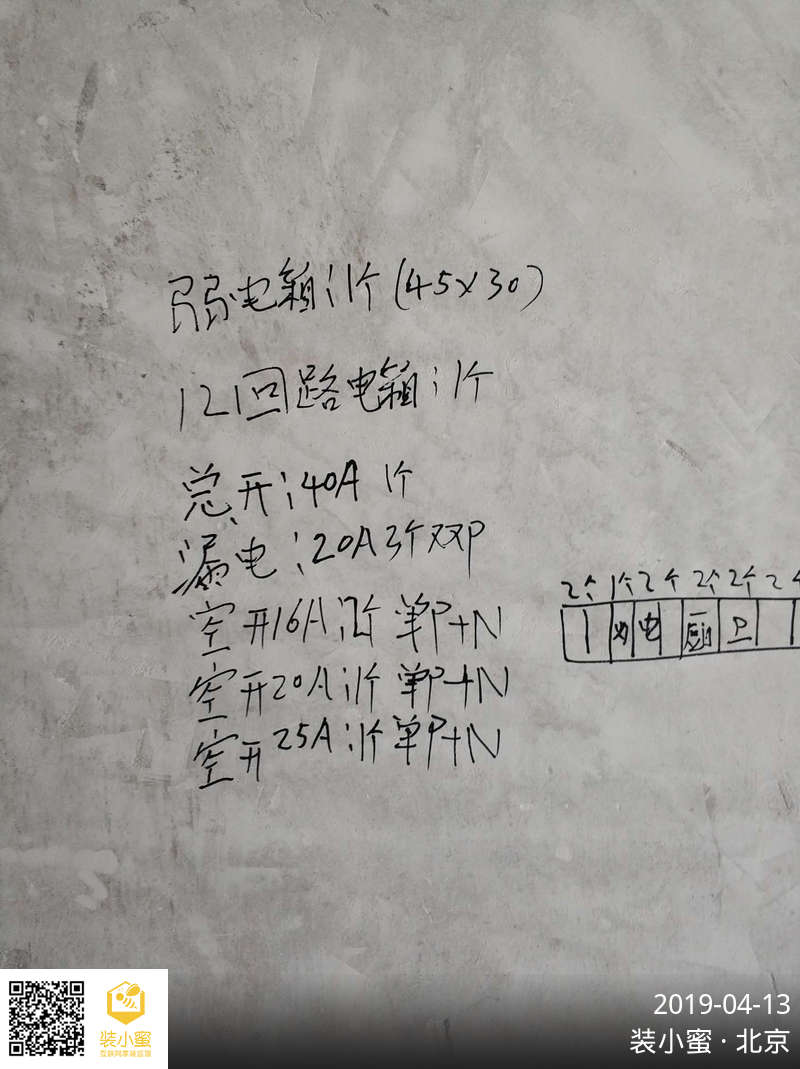 弱电箱:1个(45×30)
121回路电箱:1个
总开:40A 1个
漏电:20A3个双P
空开16A:2个 单P+N
空开20A:1个 单P+N
空开25A:1个单P+N
2个 1个 2个 2个 2个 2个
电 厨 卫
装小蜜
2019-04-13
装小蜜·北京